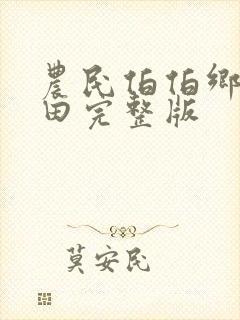 農民伯伯鄉
田完整版
莫安民